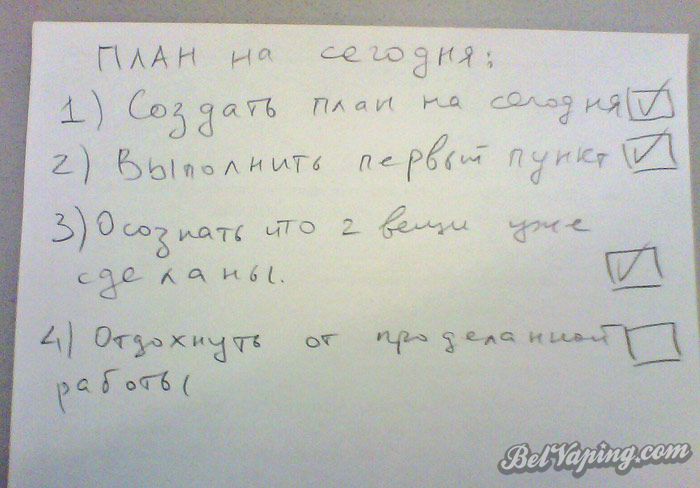 ПЛАН на сегодня:
1) Создать план на сегодня
2) Выполнить первый пункт
3) Осознать что 2 вещи уже
сделаны.
4) Отдохнуть от проделанной
работы
BelVaping.com